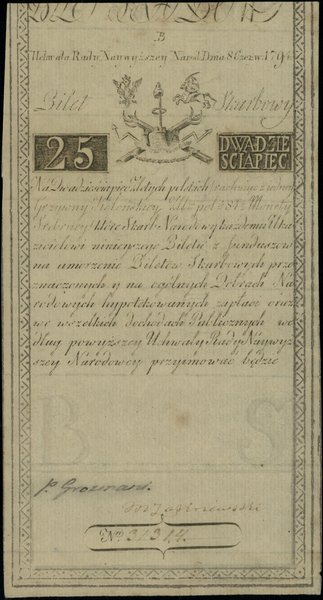 B
Uchwała Rady Naywyższey Narod. Dnia 8 Czerw. 1794
Bilet Skarbowy
25 DWADZIE
SCIAPIEC
Na Dwadzieściapięć Złotych polskich rachując z iedney
Grzywny Kolońskiey Złł. pol. 84½ Monety
Srebrney które Skarb Narodowy każdemu Oka-
zicielowi ninieyszego Biletu z funduszow
na umorzenie Biletow Skarbowych prze-
znaczonych y na ogólnych Dobrach Na-
rodowych hypotekowanych zapłaci oraz
we wszelkich dochodach Publicznych we-
dług powyższey Uchwały Rady Naywyż-
szey Narodowey przyimować będzie
B S
P. Grozmani.
N° 31314.